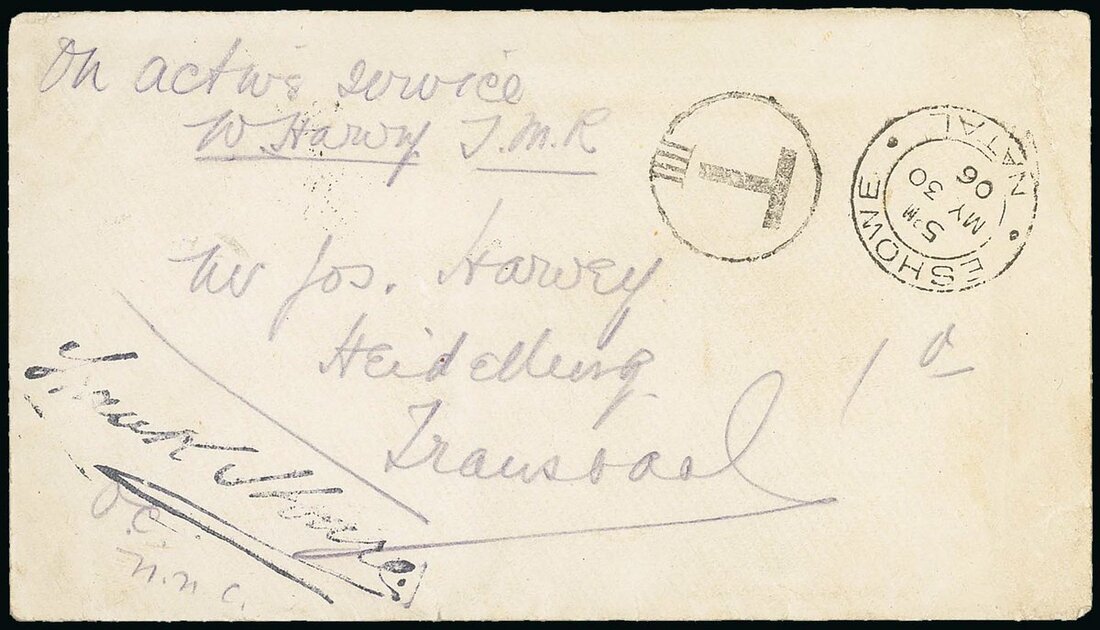 On active service
W. Harvey T.M.R
T
ESHOWE NATAL
5 PM
MY 30
06
Mr Jos. Harvey
Heidelberg
Transvaal
1 d
O.C.
N.N.C.